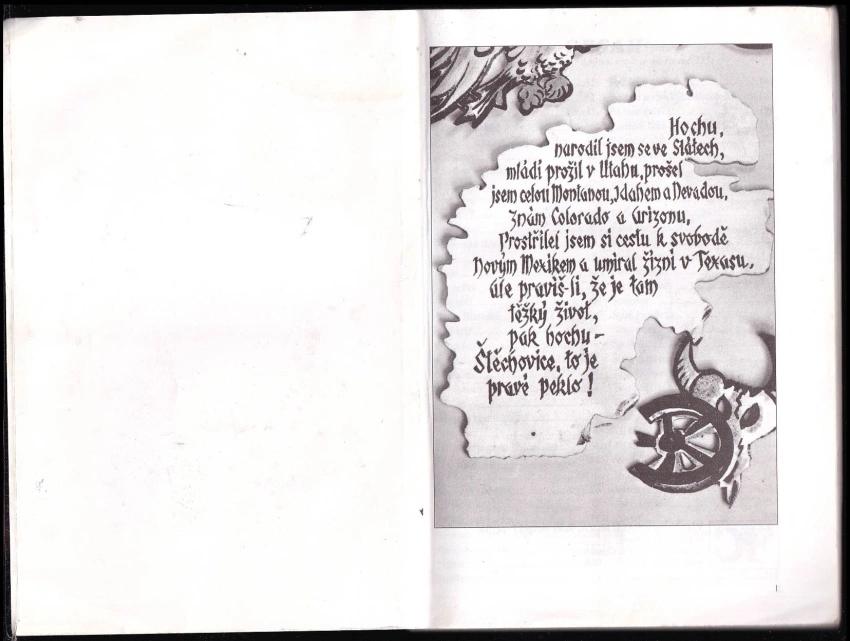 Hochu,
narodil jsem se ve Státech,
mládí prožil v Utahu, prošel
jsem celou Montanou, Idahem a Nevadou,
znám Colorado a Arizonu,
Prostřílel jsem si cestu k svobodě
Novým Mexikem a umíral žízní v Texasu.
ale pravíš-li, že je tam
těžký život,
pak hochu -
Štěchovice, to je
pravé peklo!